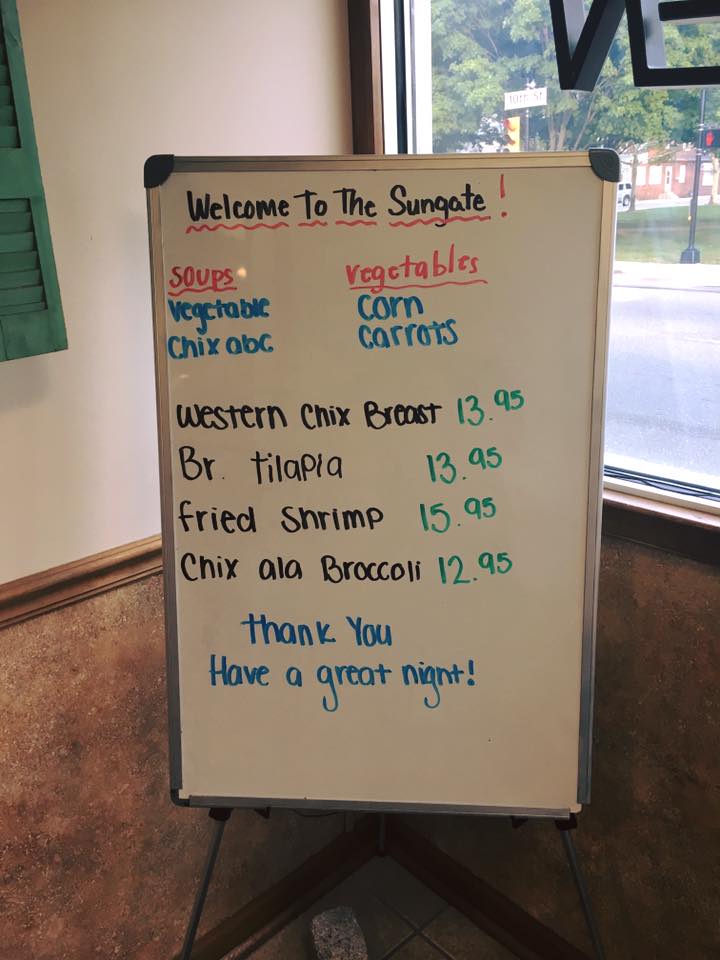 VE
10th St
Welcome To The Sungate !
Soups
Vegetable
Chix abc
Vegetables
Corn
Carrots
Western Chix Breast 13.95
Br. tilapia 13.95
fried Shrimp 15.95
Chix ala Broccoli 12.95
thank You
Have a great night!